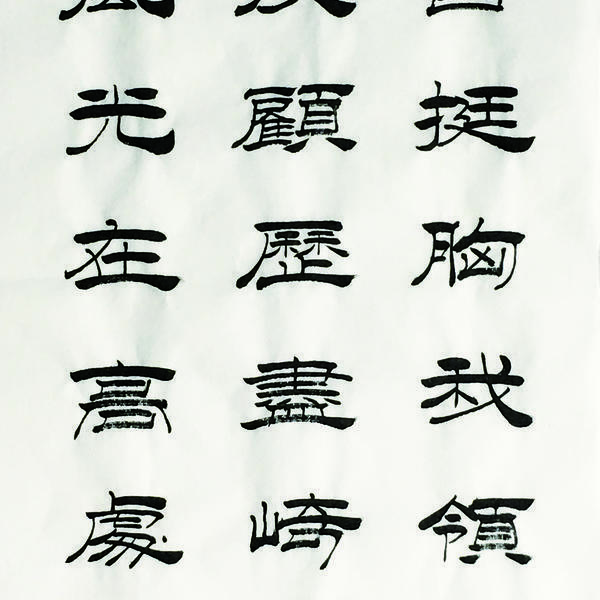 首挺胸我領
顧歷盡崎
風光在高處